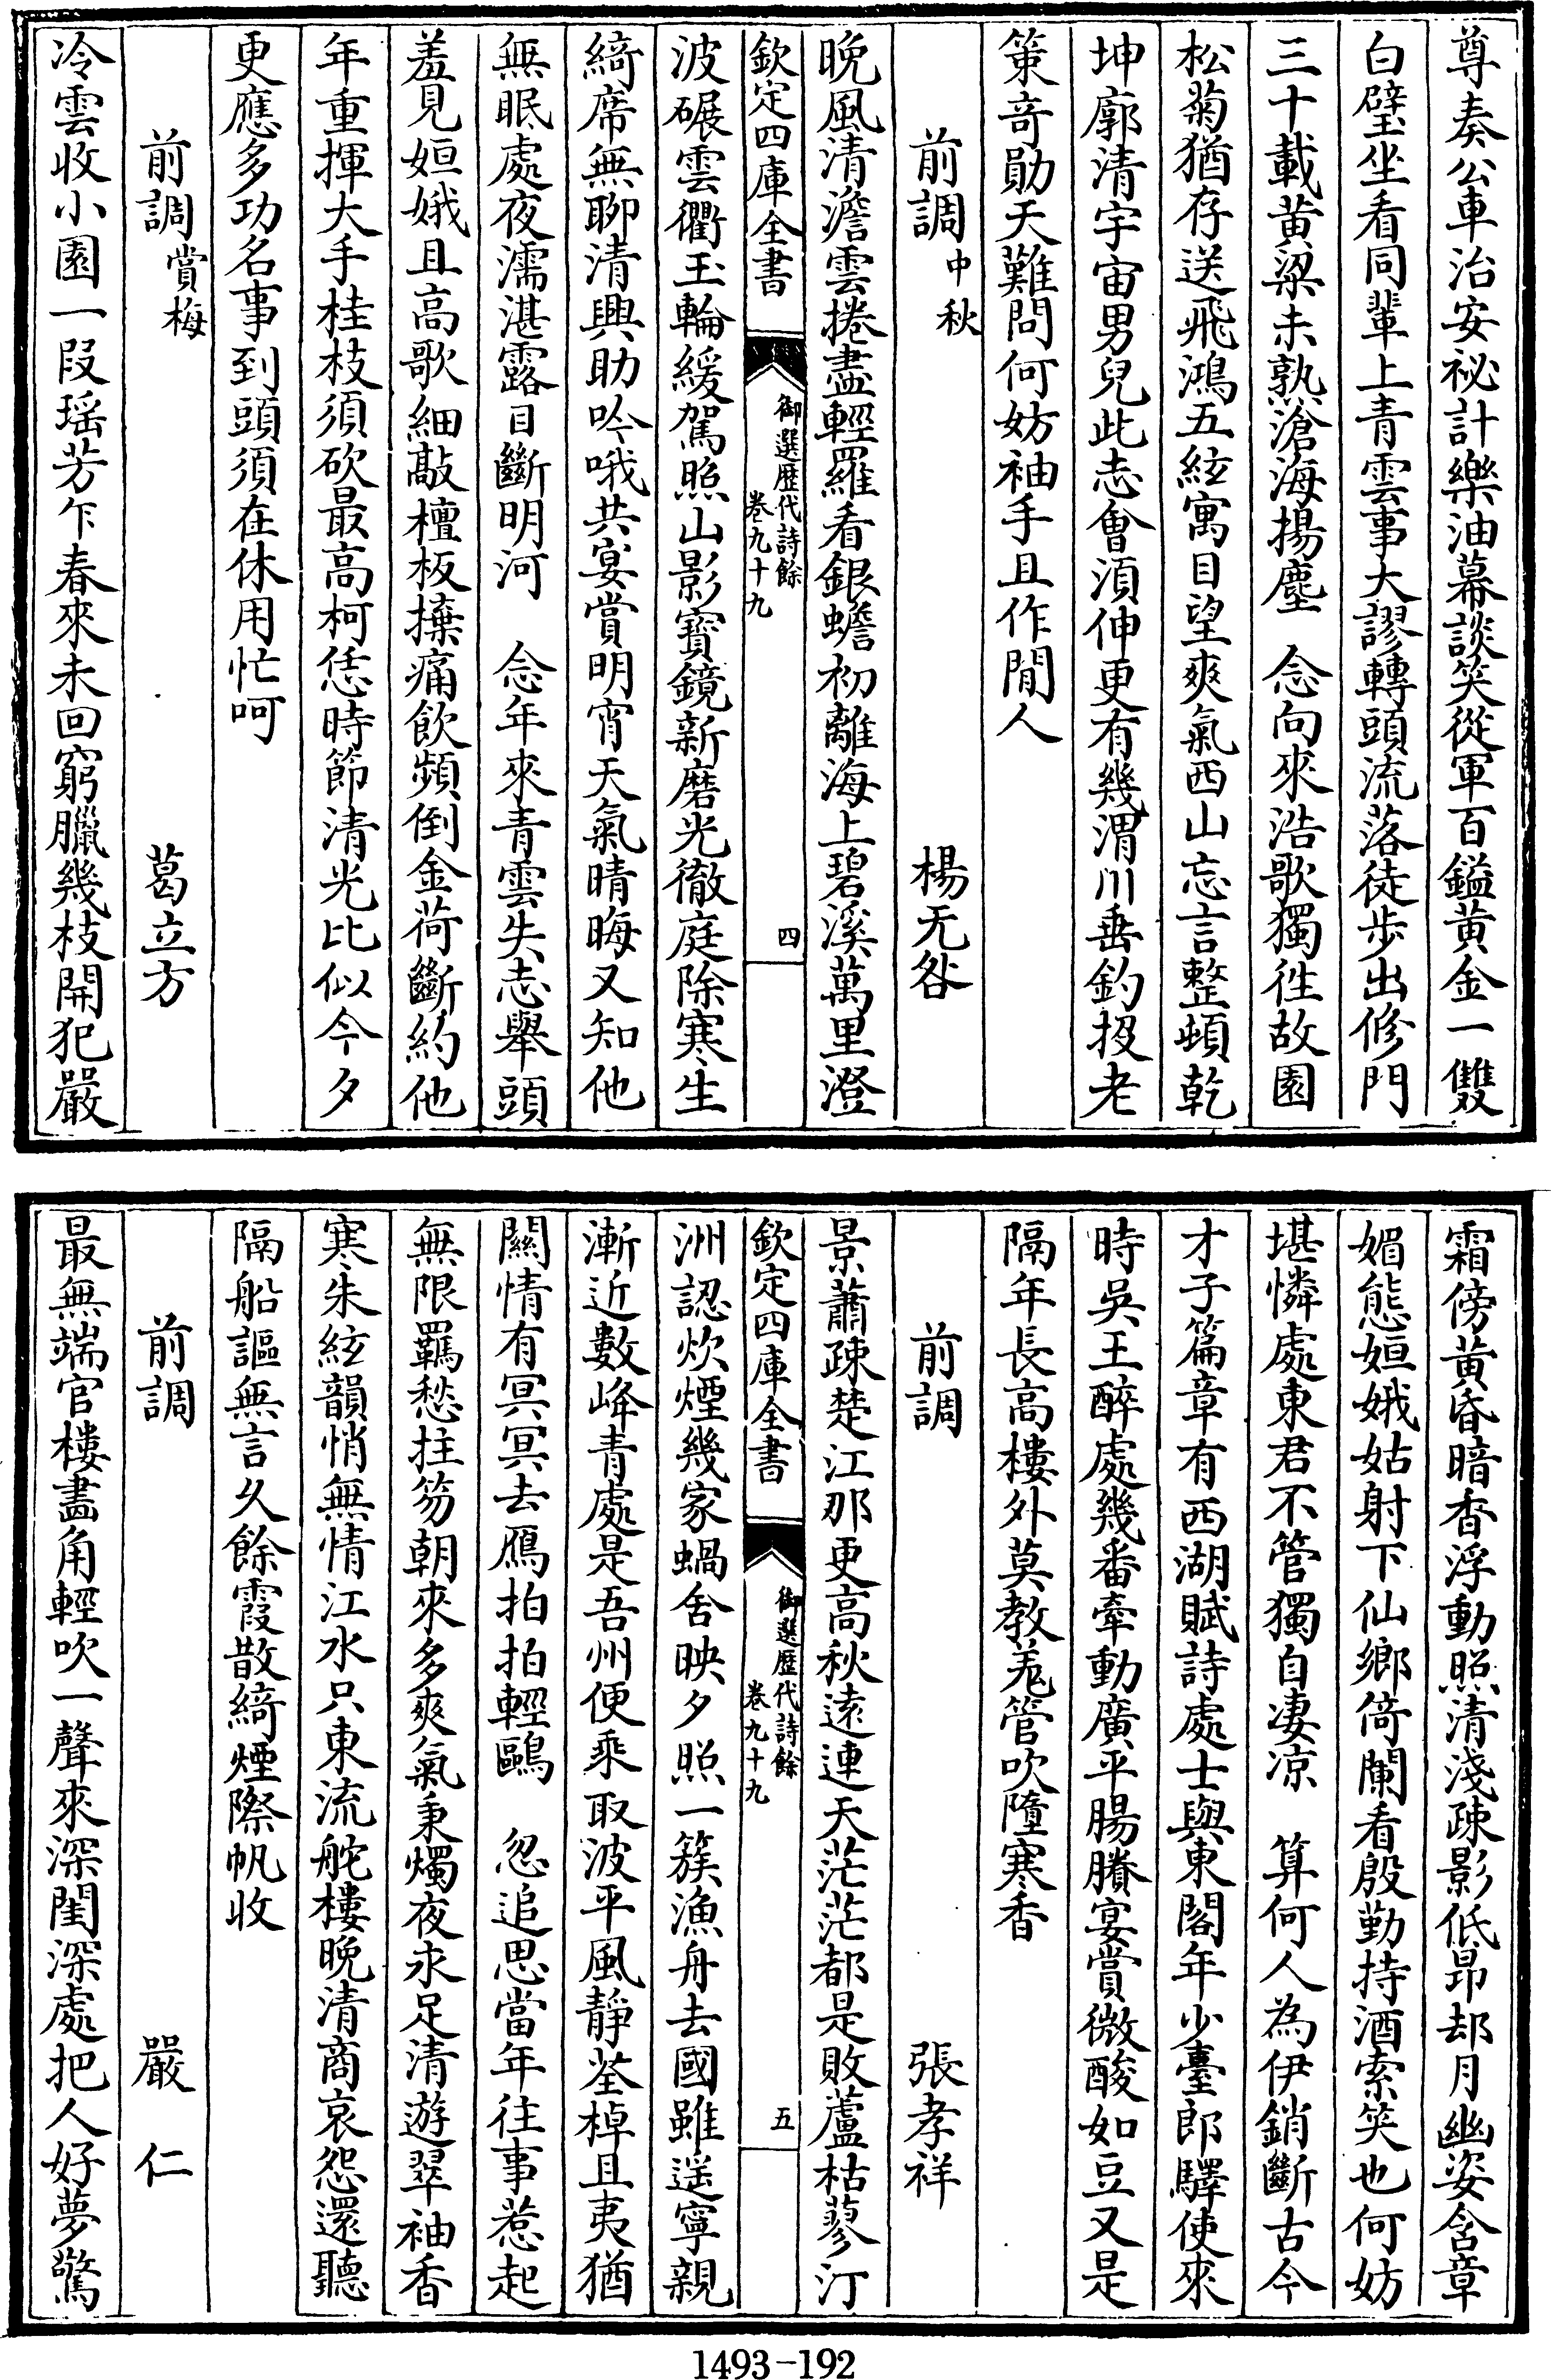 尊奏公車治安祕計樂油幕談笑從軍百鎰黄金一雙
白璧坐看同輩上青雲事大謬轉頭流落徒歩出修門
三十載黄粱未熟滄海揚塵　念向來浩歌獨徃故園
松菊猶存送飛鴻五絃寓目望爽氣西山忘言整頓乾
坤廓清宇宙男兒此志㑹湏伸更有幾渭川垂釣投老
策竒勛天難問何妨袖手且作閒人
前調中秋　楊无咎
晚風清澹雲捲盡輕羅看銀蟾初離海上碧溪萬里澄
欽定四庫全書
御選歴代詩餘
卷九十九
四
波碾雲衢玉輪緩駕照山影寳鏡新磨光徹庭除寒生
綺席無聊清興助吟哦共宴賞明宵天氣晴晦又知他
無眠處夜濡湛露目斷明河　念年來青雲失志舉頭
羞見姮娥且高歌細敲檀板拚痛飲頻倒金荷斷約他
年重揮大手桂枝須砍最高柯恁時節清光比似今夕
更應多功名事到頭須在休用忙呵
前調賞梅　葛立方
冷雲收小園一段瑶芳乍春來未回窮臘幾枝開犯嚴
霜傍黄昏暗香浮動照清淺疎影低昻却月幽姿含章
媚態姮娥姑射下仙鄉倚闌看殷勤持酒索笑也何妨
堪憐處東君不管獨自凄凉　算何人為伊銷斷古今
才子篇章有西湖賦詩處士與東閣年少臺郎驛使來
時吳王醉處幾番牽動廣平腸賸宴賞微酸如豆又是
隔年長高樓外莫教羌管吹墮寒香
前調　張孝祥
景蕭疎楚江那更高秋遠連天茫茫都是敗蘆枯蓼汀
欽定四庫全書
御選歴代詩餘
卷九十九
五
洲認炊煙幾家蝸舍映夕照一簇漁舟去國雖遥寜親
漸近數峰青處是吾州便乘取波平風靜荃棹且夷猶
關情有冥冥去鴈拍拍輕鷗　忽追思當年往事惹起
無限羈愁拄笏朝來多爽氣秉燭夜永足清遊翠袖香
寒朱絃韻悄無情江水只東流柁樓晚清商哀怨還聽
隔船謳無言久餘霞散綺煙際帆收
前調　嚴　仁
最無端官樓畫角輕吹一聲來深閨深處把人好夢驚
1493-192